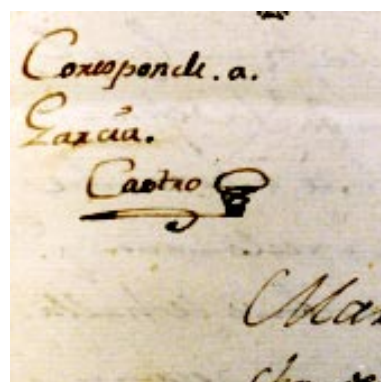 Coresponde. a.
Garcia.
Castro